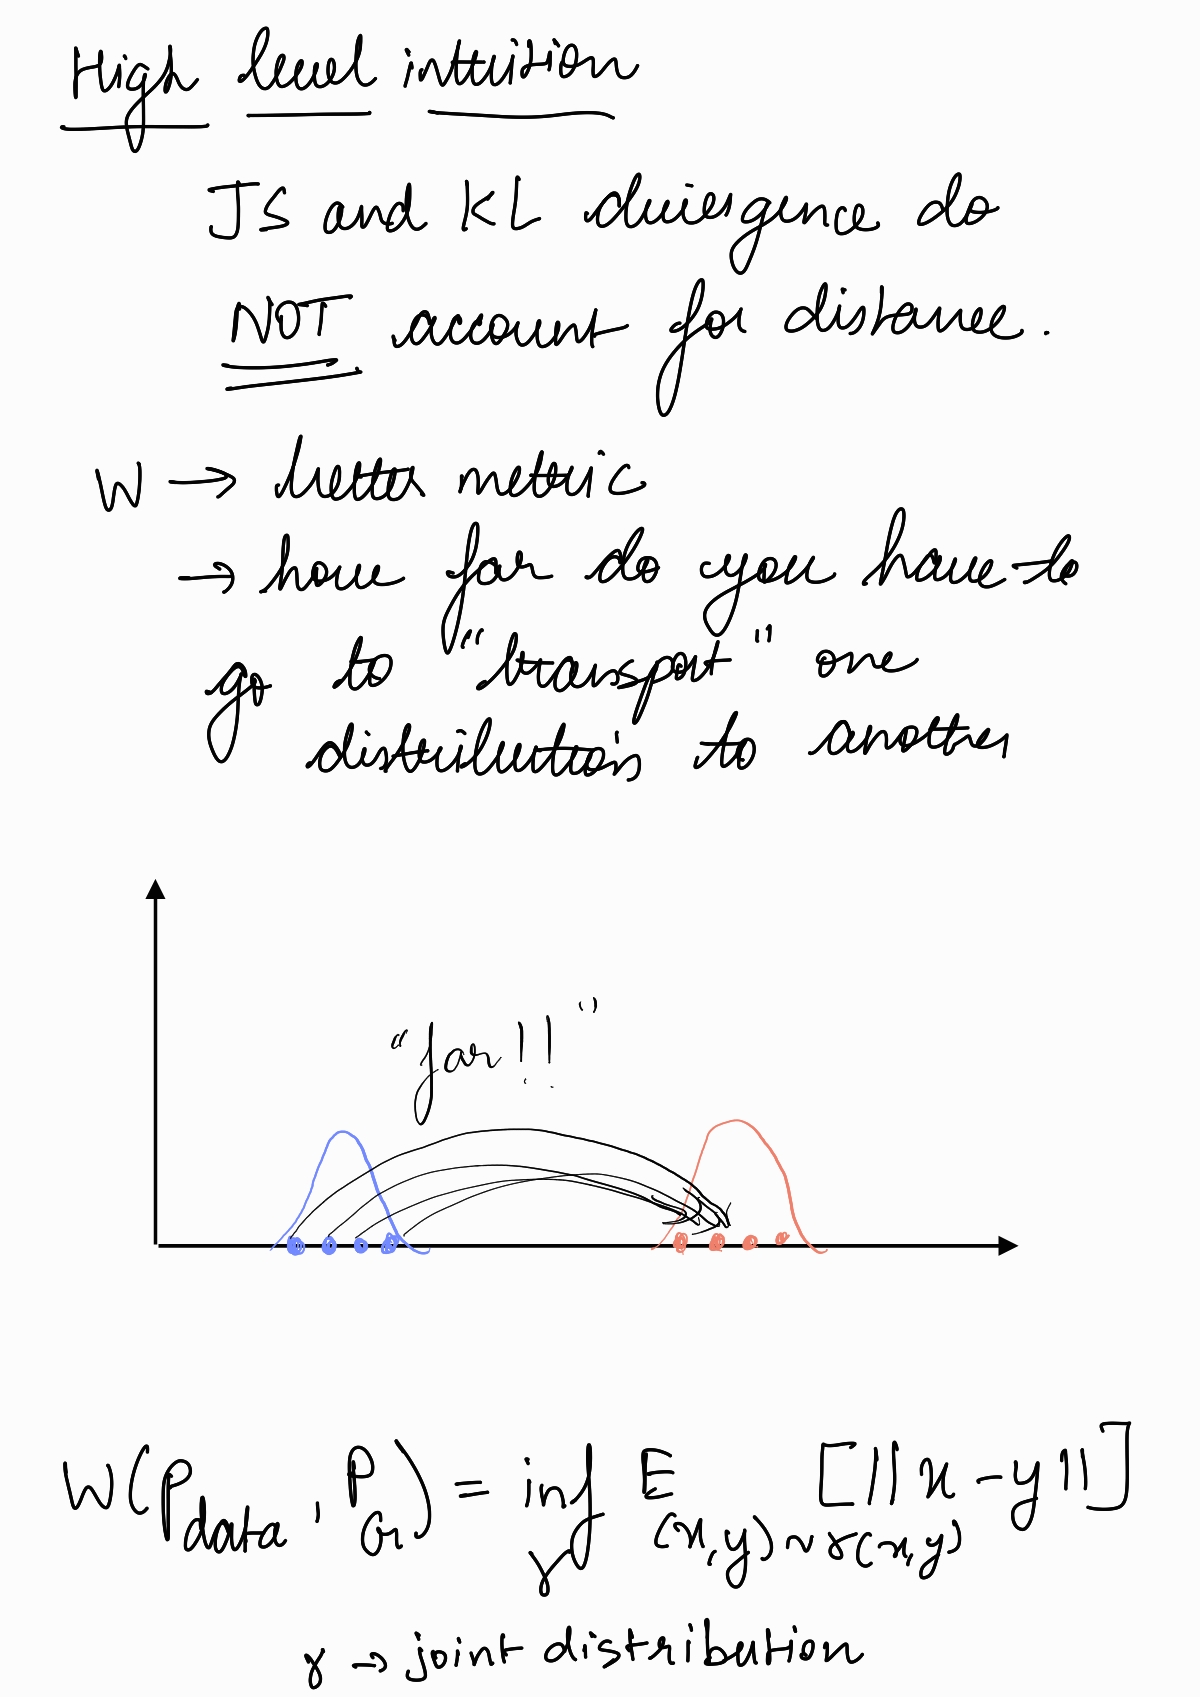 High level intuition
JS and KL divergence do
NOT account for distance.
W → better metric
→ how far do you have to
go to "transport" one
distribution to another
"far!!"
W(P_data, P_G) = inf_γ E_(x,y)~γ(x,y) [||x-y||]
γ → joint distribution